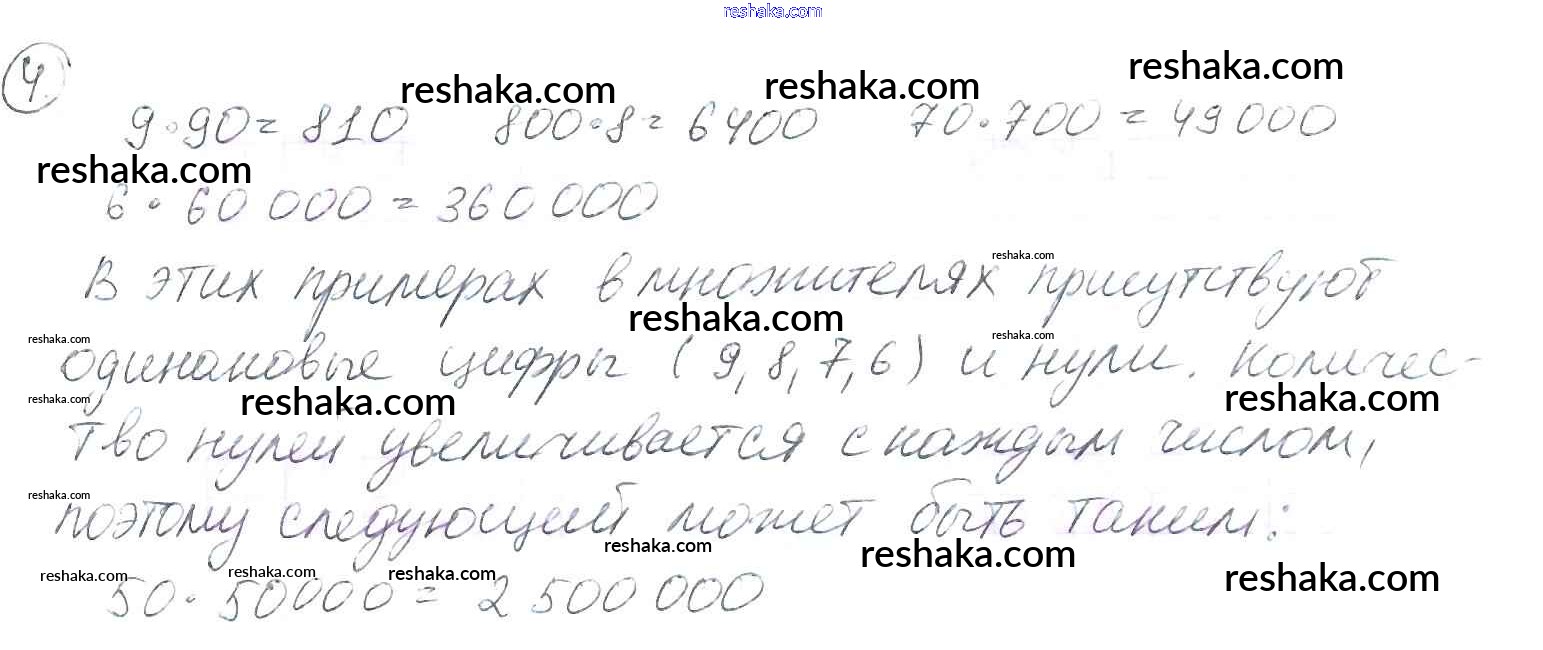 reshaka.com
4.
reshaka.com reshaka.com reshaka.com
9·90= 810 800·8= 6400 70·700 = 49 000
reshaka.com
6·60 000 = 360 000
reshaka.com
В этих примерах в множителях присутствуют
reshaka.com
reshaka.com reshaka.com
одинаковые цифры (9, 8, 7, 6) и нули. Количес-
reshaka.com reshaka.com reshaka.com
тво нулей увеличивается с каждым числом,
reshaka.com
поэтому следующий может быть таким:
reshaka.com reshaka.com
reshaka.com reshaka.com reshaka.com reshaka.com
50·50000= 2 500 000